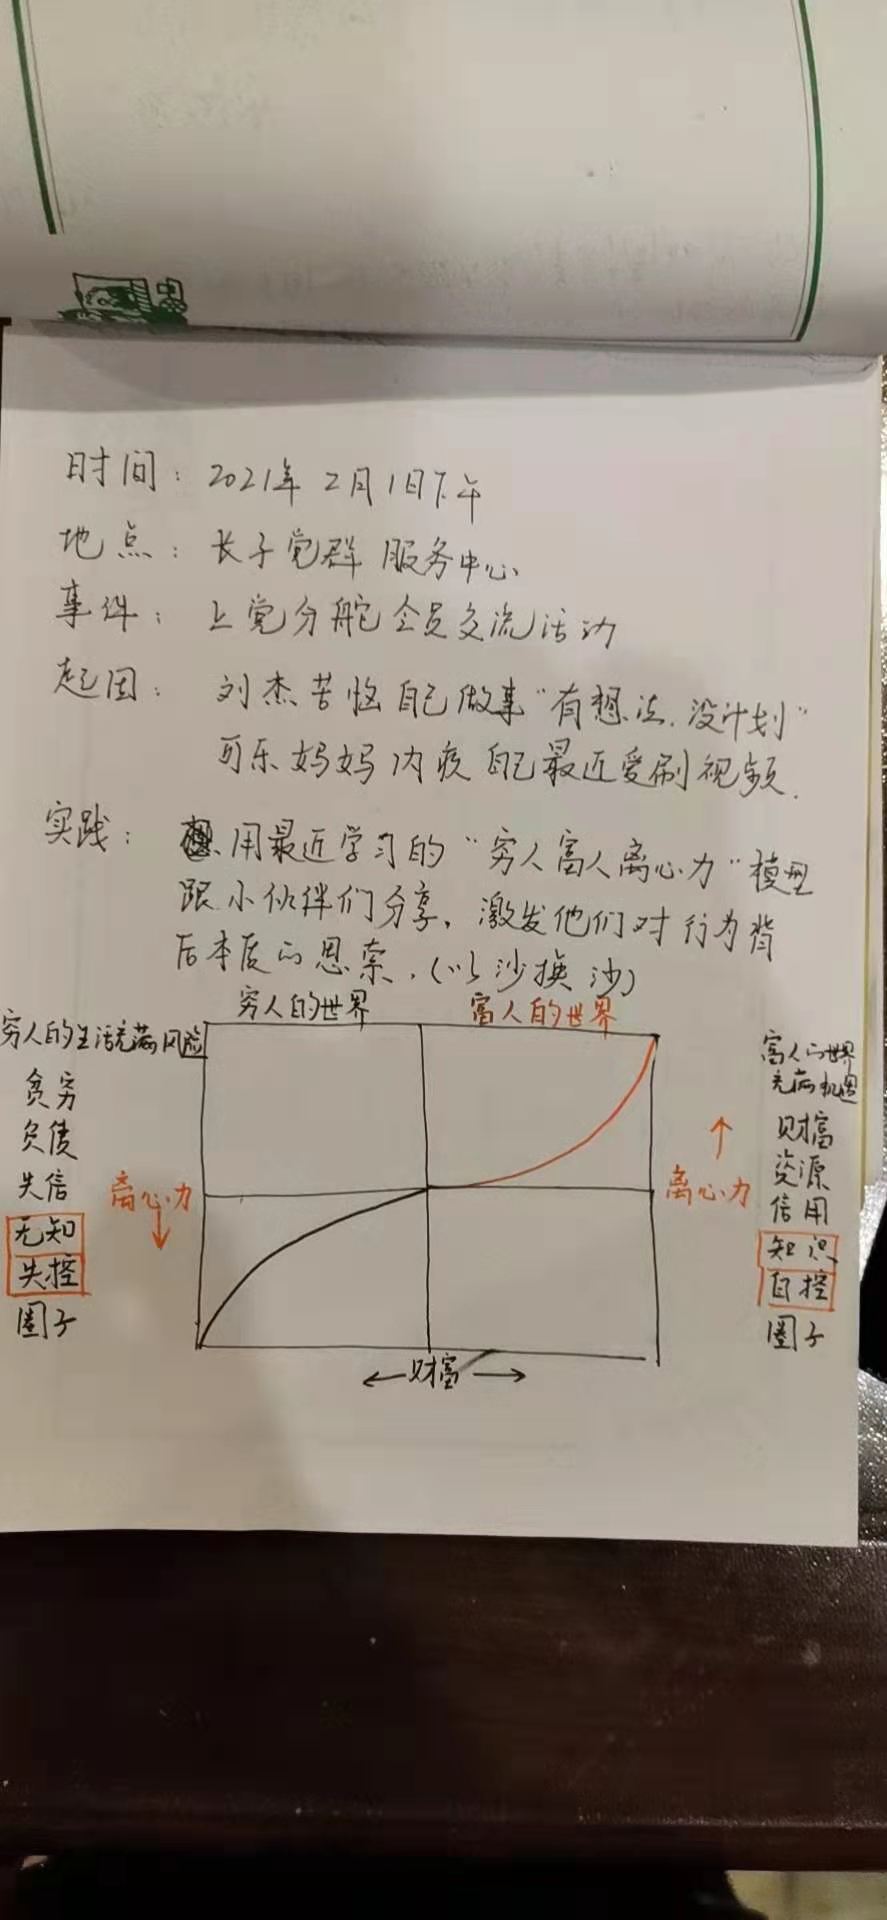 时间：2021年2月1日下午
地点：长子党群服务中心
事件：上党分舵全员交流活动
起因：刘杰苦恼自己做事“有想法.没计划”
可乐妈妈内疚自己最近爱刷视频.
实践：用最近学习的“穷人富人离心力”模型
跟小伙伴们分享，激发他们对行为背
后本质的思索.(以沙换沙)
穷人的世界
富人的世界
穷人的生活充满风险
贫穷
负债
失信
无知
失控
圈子
离心力
↓
↑
离心力
富人的世界
充满机遇
财富
资源
信用
知识
自控
圈子
← 财富 →